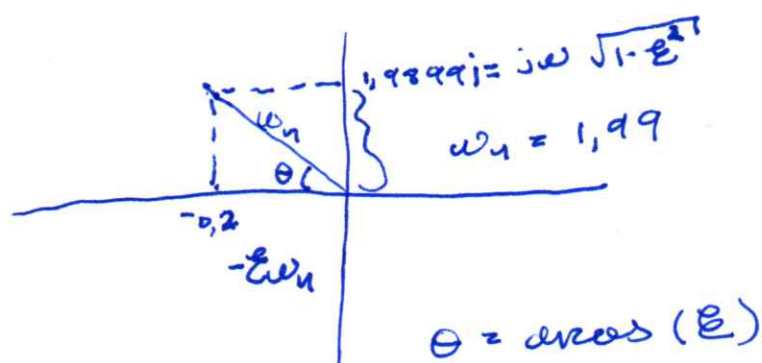 1,9899j = jω √1-ξ²
ωn
ωn = 1,99
θ
-0,2
-ξωn
θ = arcos (ξ)